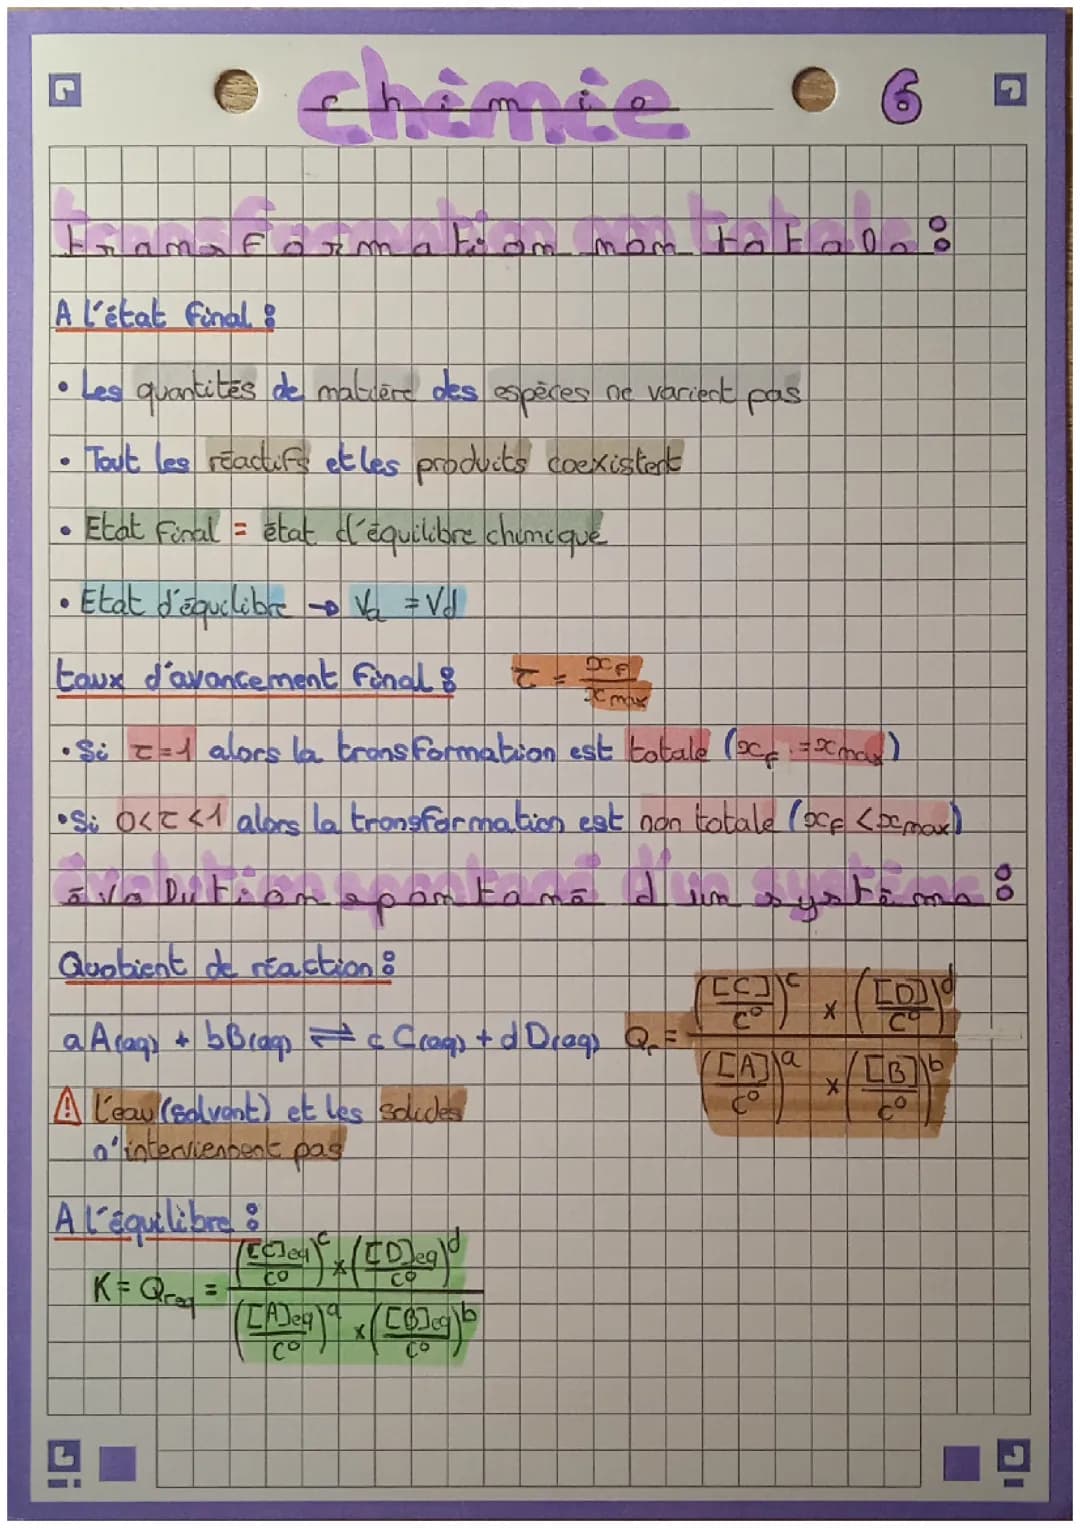 chimie 6
transformation non totale :
A l'état final :
• Les quantités de matière des espèces ne varient pas
• Tout les réactifs et les produits coexistent
• Etat final = état d'équilibre chimique
• Etat d'équilibre → Va = Vd
taux d'avancement final : τ = xf / xmax
• Si τ = 1 alors la transformation est totale (xf = xmax)
• Si 0 < τ < 1 alors la transformation est non totale (xf < xmax)
évolution spontané d'un système :
Quotient de réaction :
a A(aq) + b B(aq) ⇌ c C(aq) + d D(aq) Qr = (([C]/C°)^c × ([D]/C°)^d) / (([A]/C°)^a × ([B]/C°)^b)
⚠ L'eau (solvant) et les solides
n'interviennent pas
A l'équilibre :
K = Qreq = (([C]eq/C°)^c × ([D]eq/C°)^d) / (([A]eq/C°)^a × ([B]eq/C°)^b)